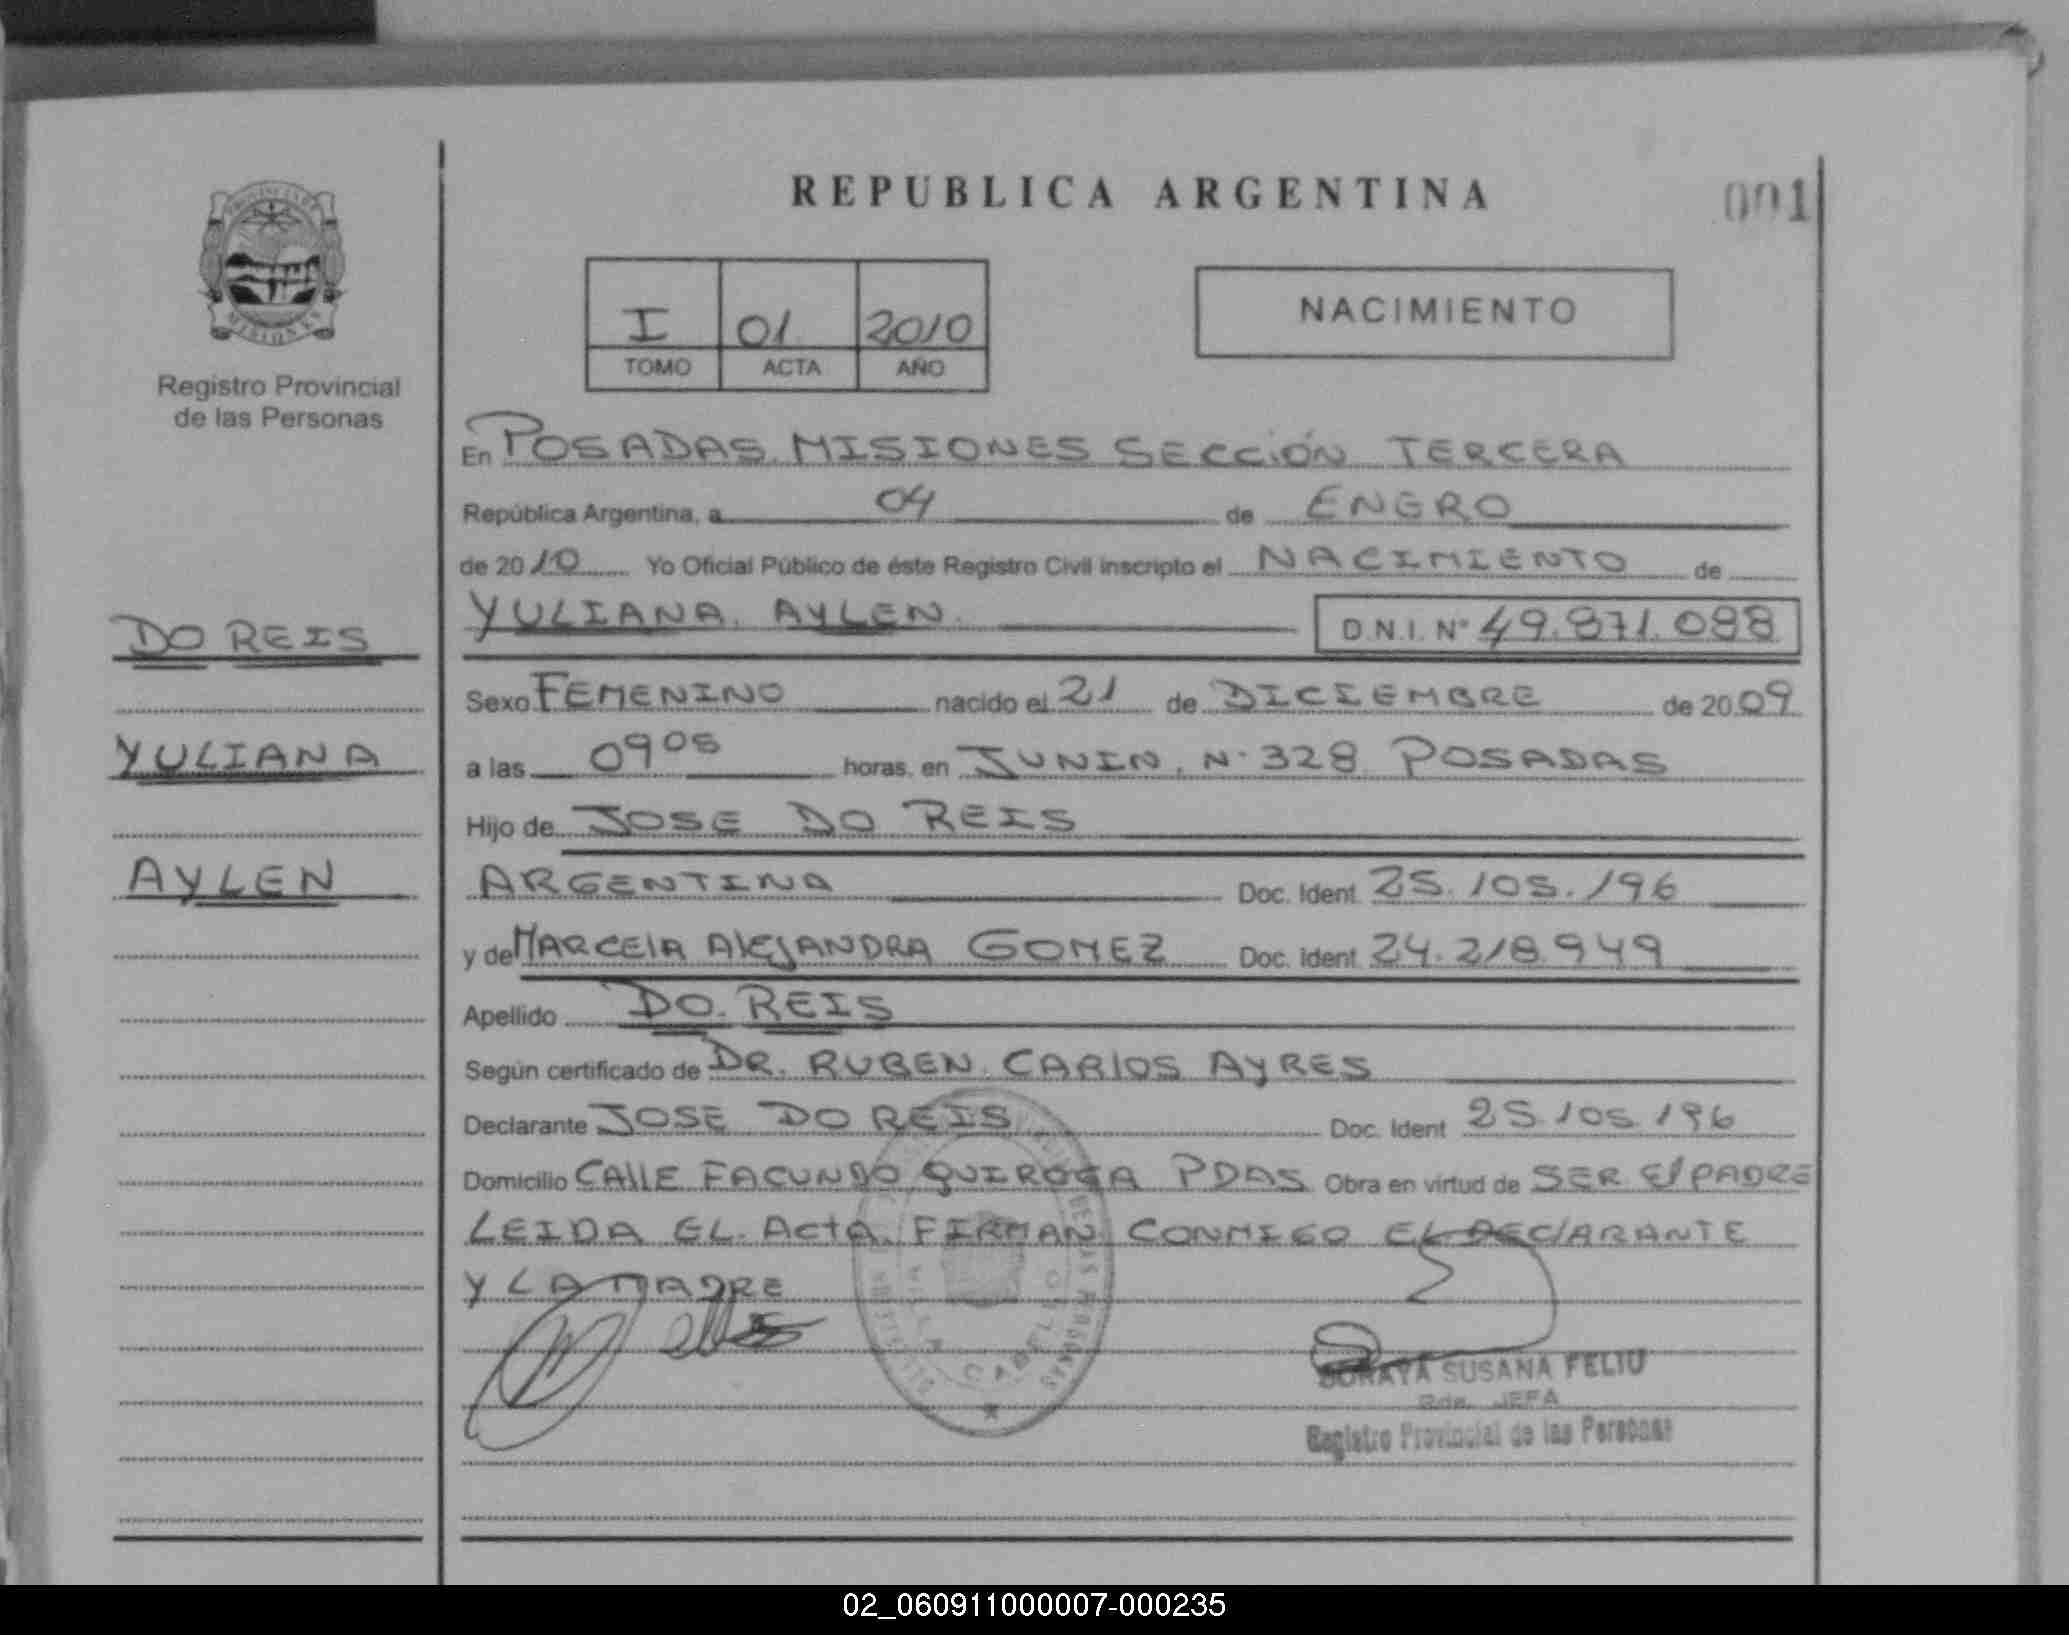 REPUBLICA ARGENTINA
001
PROVINCIA DE
MISIONES
Registro Provincial
de las Personas
I 01 2010
TOMO ACTA AÑO
NACIMIENTO
En POSADAS. MISIONES SECCIÓN TERCERA
República Argentina, a 04 de ENERO
de 2010 Yo Oficial Público de éste Registro Civil inscripto el NACIMIENTO de
YULIANA. AYLEN. D.N.I. Nº 49.871.088
DO REIS
YULIANA
AYLEN
Sexo FEMENINO nacido el 21 de DICIEMBRE de 2009
a las 09 05 horas, en JUNIN. N· 328 POSADAS
Hijo de JOSE DO REIS
ARGENTINA Doc. Ident. 25.105.196
y de MARCELA ALEJANDRA GOMEZ Doc. Ident. 24.218.949
Apellido DO. REIS
Según certificado de DR. RUBEN. CARLOS AYRES
Declarante JOSE DO REIS Doc. Ident 25.105.196
Domicilio CALLE FACUNDO QUIROGA PDAS Obra en virtud de SER El PADRE
LEIDA EL. ActA. FIRMAN CONMIGO EL DEClARANTE
Y LA MADRE
VILLA CABELLO
SORAYA SUSANA FELIU
JEFA
Registro Provincial de las Personas
02_060911000007-000235